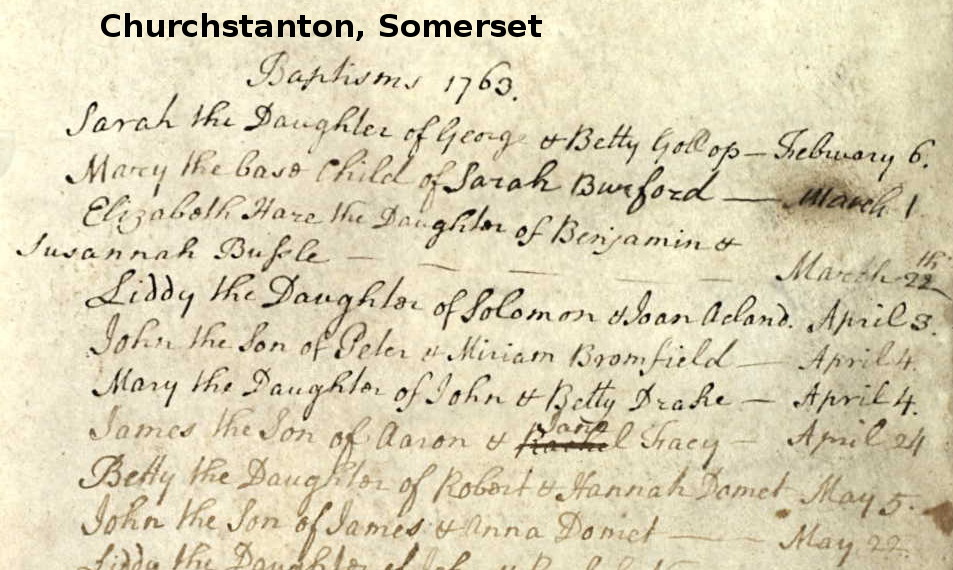 Churchstanton, Somerset
Baptisms 1763.
Sarah the Daughter of George & Betty Gollop – February 6.
Mary the base Child of Sarah Burford — March 1
Elizabeth Hare the Daughter of Benjamin &
Susannah Bussle — — — — — March 22th
Liddy the Daughter of Solomon & Joan Acland. April 3.
John the Son of Peter & Miriam Bromfield — April 4.
Mary the Daughter of John & Betty Drake — April 4.
James the Son of Aaron & Rachel Jane Tracy — April 24
Betty the Daughter of Robert & Hannah Domet May 5.
John the Son of James & Anna Domet — — May 22.
Liddy the Daughter of